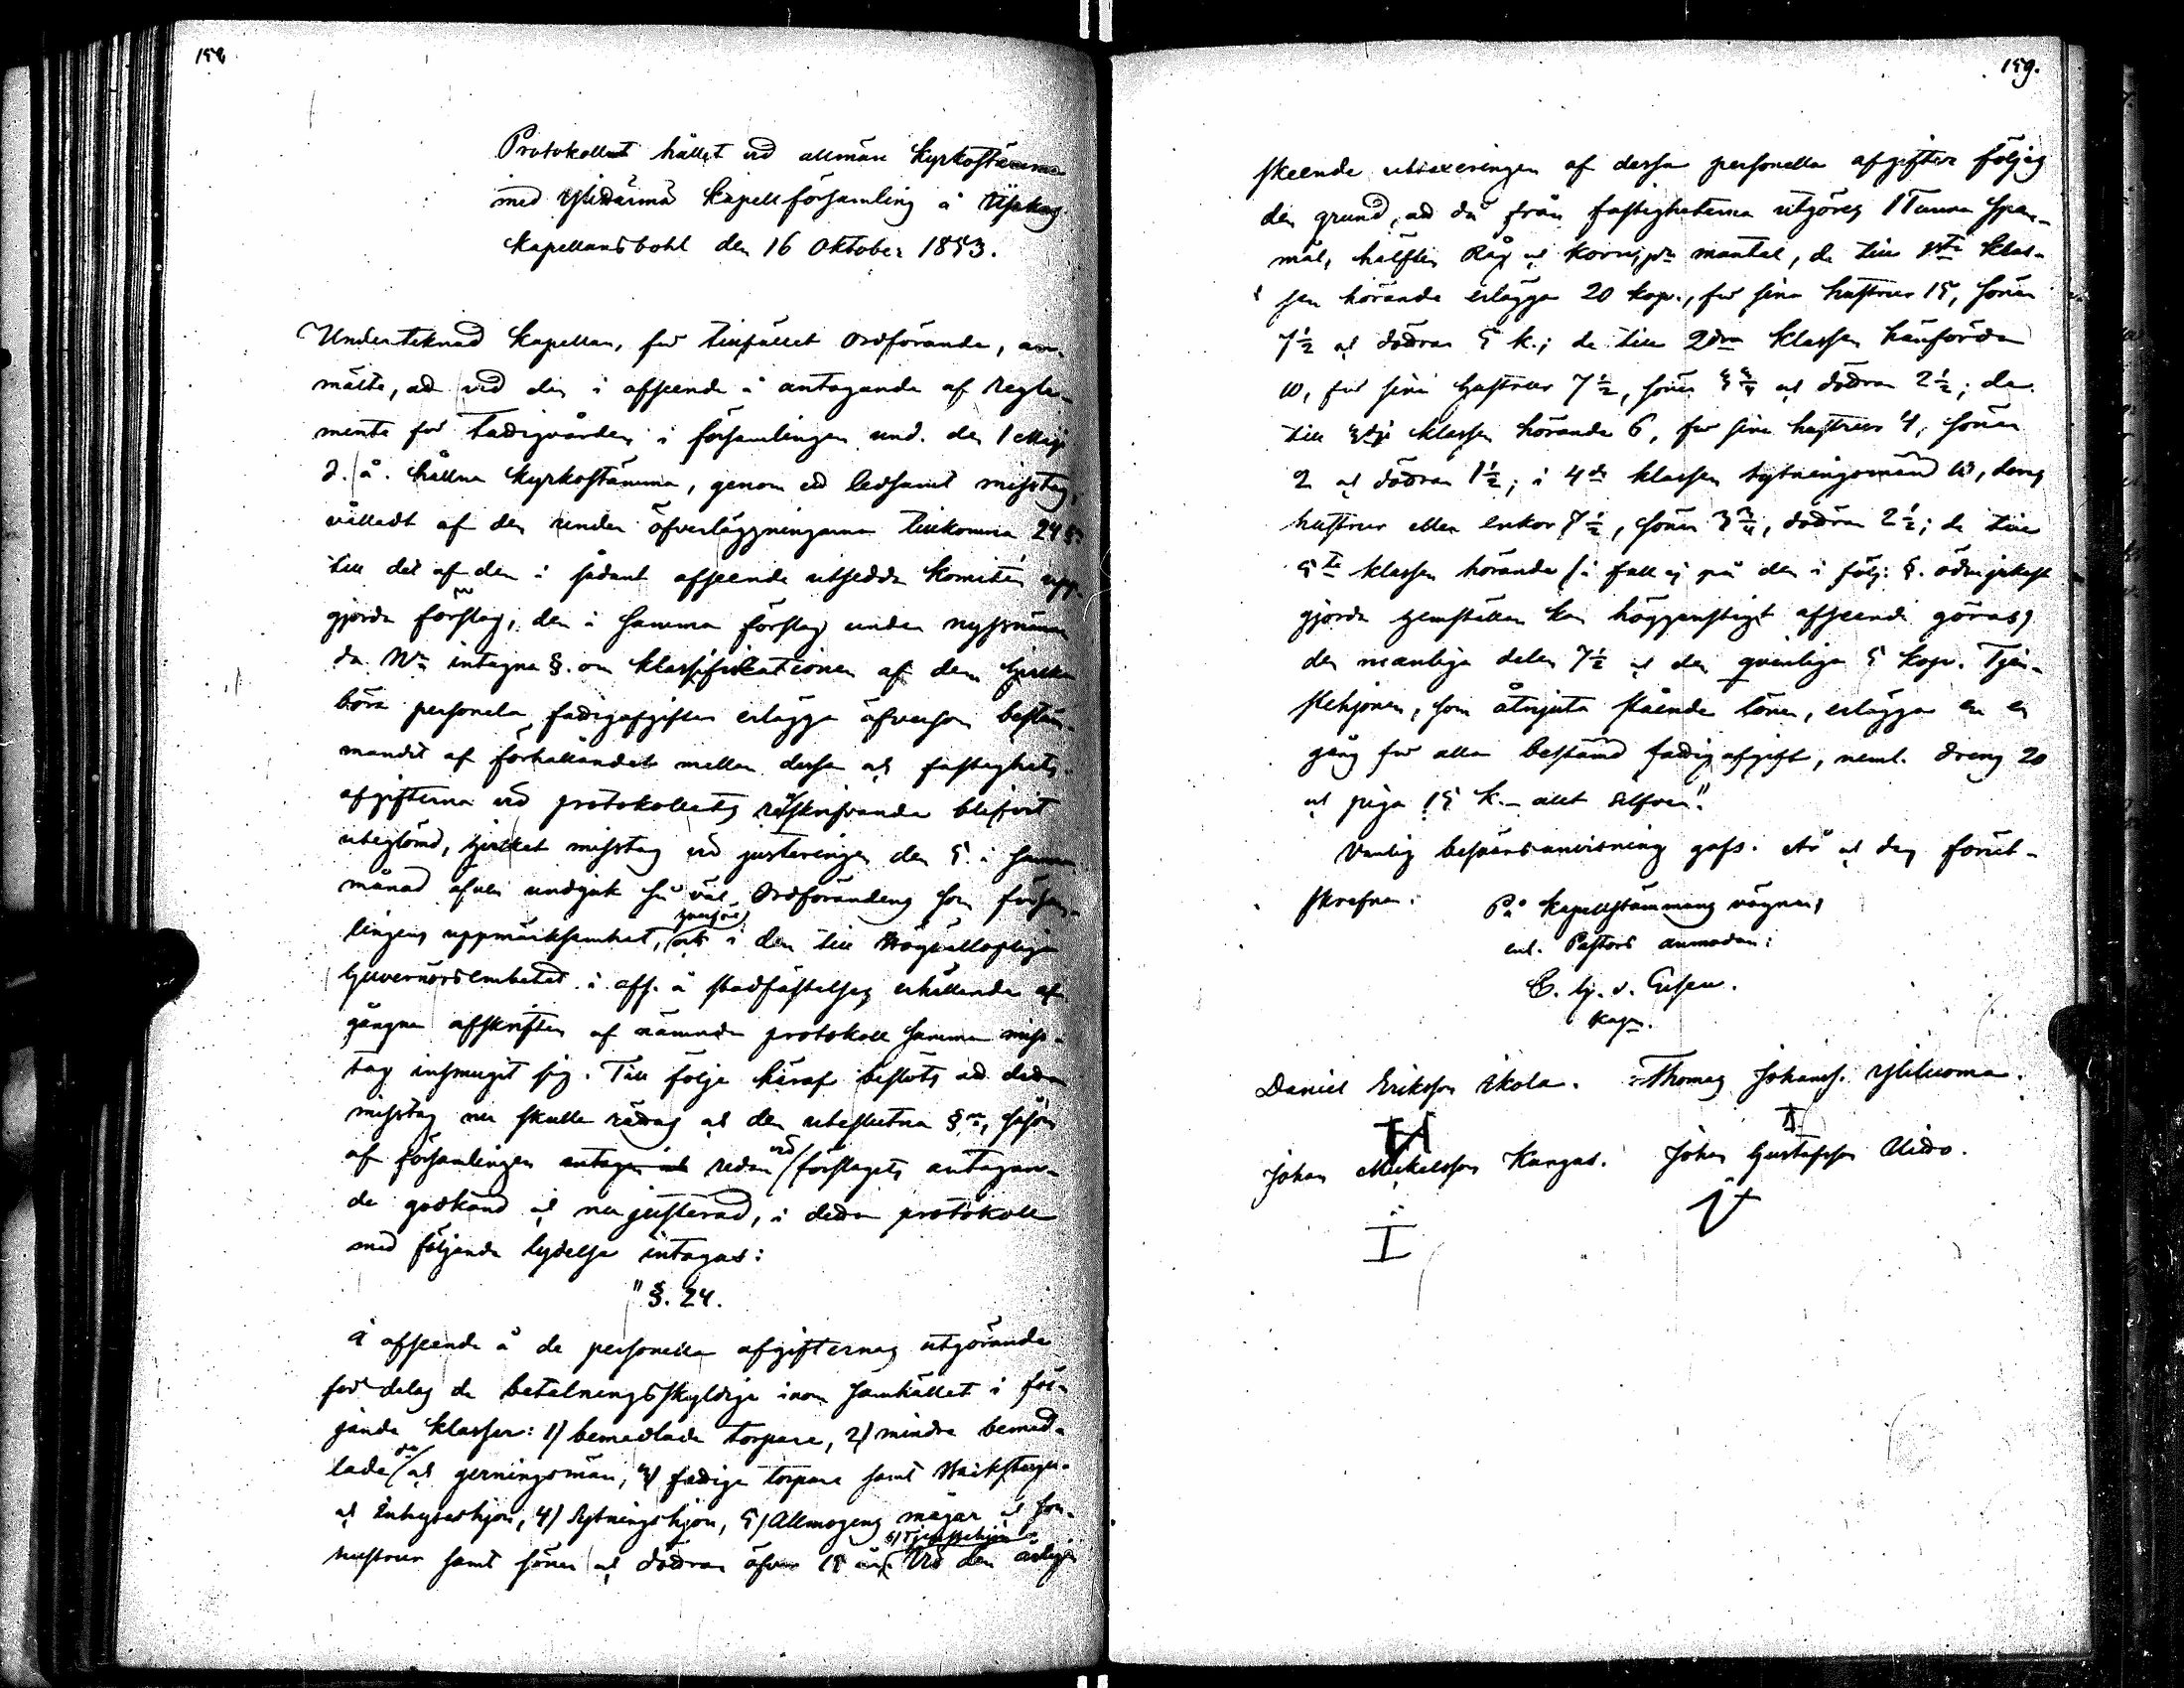 158
Protokollet hållet vid allmän Kyrkostämma
med Ylihärmä Kapellförsamling å
Kapellansbohl den 16 Oktober 1853.
Undertecknad Kapellan, för tillfället Ordförande, an-
mälte, att vid den i afseende å antagande af Regle-
mente för Fattigvården i församlingen und. den 1 Maji
d. å. hållna Kyrkostämma, genom ett ledsamt misstag,
vålladt af den under öfverläggningarna tillkomna 24 §.
till det af den i sådant afseende utsedda Komitén upp-
gjorda förslag, den i samma förslag under nyssnämn-
da N:o intagna §. om klassifikationen af dem hvilka
böra personela fattigafgifter erlägga äfvensom bestäm-
mandet af förhållandet mellan dessa och fastighets-
afgifterna vid protokollets renskrifvande blifvit
uteglömd, hvilket misstag vid justeringen den 5 i samma
månad äfven undgick så väl Ordförandens som försam-
lingens uppmärksamhet, och i den till Högvällofliga
Guvernörsembetet i afs. å stadfästelses erhållande af-
gångna afskriften af nämnda protokoll samma miss-
tag insmugit sig. Till följe häraf beslöts att detta
misstag nu skulle rättas och den uteslutna §:n, såsom
af församlingen redan vid förslagets antagan-
de godkänd och nu justerad, i detta protokoll
med följande lydelse intagas:
"§. 24.
I afseende å de personella afgifternas utgörande
fördelas de betalningsskyldige inom samhället i föl-
jande klasser: 1) bemedlade torpare, 2) mindre bemed-
lade d:o och gerningsmän, 3) fattige torpare samt Backstugu-
och Inhyseshjon, 4) Sytningshjon, 5) Allmogens mågar och son-
hustrur samt söner och döttrar öfver 15 år, 6) Tjenstehjon. Vid den årligen
159.
skeende uttaxeringen af dessa personella afgifter följes
den grund, att då från fastigheterna utgöres 1 Tunna Span-
mål, hälften Råg och Korn, pr mantal, de till 1sta Klas-
sen hörande erlägga 20 kop., för sina hustrur 15, söner
7½ och döttrar 5 k.; de till 2dra Klassen hänförda
10, för sina hustrur 7½, söner 3¾ och döttrar 2½; de
till 3dje klassen hörande 6, för sina hustrur 4, söner
2 och döttrar 1½; i 4de klassen sytningsmän 10, deras
hustrur eller enkor 7½, söner 3¾, döttrar 2½; de till
5te klassen hörande (i fall ej på den i följ. §. ödmjukast
gjorda hemställan kan höggunstigt afseende göras)
den manliga delen 7½ och den qvinliga 5 kop. Tjen-
stehjonen, som åtnjuta stående löner, erlägga en en
gång för alla bestämd fattigafgift, neml. dreng 20
och piga 15 k. – allt silfver."
Vanlig besvärsanvisning gafs. År och dag förut-
skrefne.
På Kapellstämmans vägnar,
enl. Pastors anmodan:
Kapn.
Daniel Eriksson Ekola. Thomas Johanss. Yliluoma.
Johan Mickelsson Kangas. Johan Gustafsson